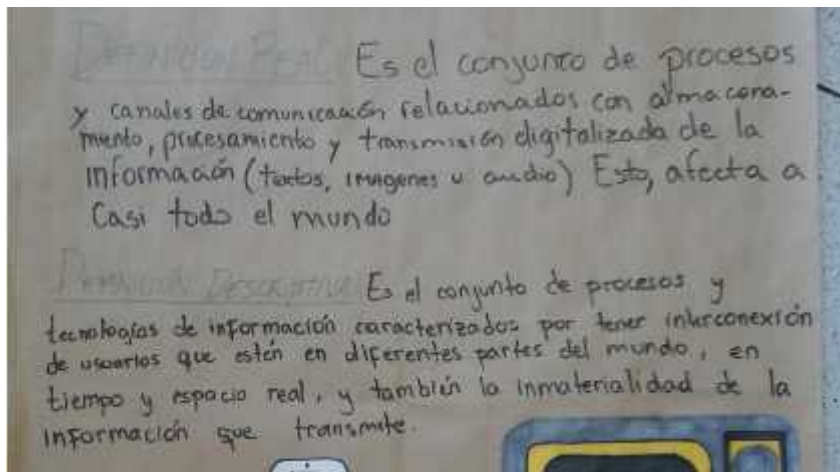 DEFINICIÓN REAL Es el conjunto de procesos
y canales de comunicación relacionados con almacena-
miento, procesamiento y transmisión digitalizada de la
información (textos, imagenes u audio) Esto, afecta a
Casi todo el mundo
DEFINICIÓN DESCRIPTIVA Es el conjunto de procesos y
tecnologías de información caracterizados por tener interconexión
de usuarios que estén en diferentes partes del mundo, en
tiempo y espacio real, y también la inmaterialidad de la
información que transmite.